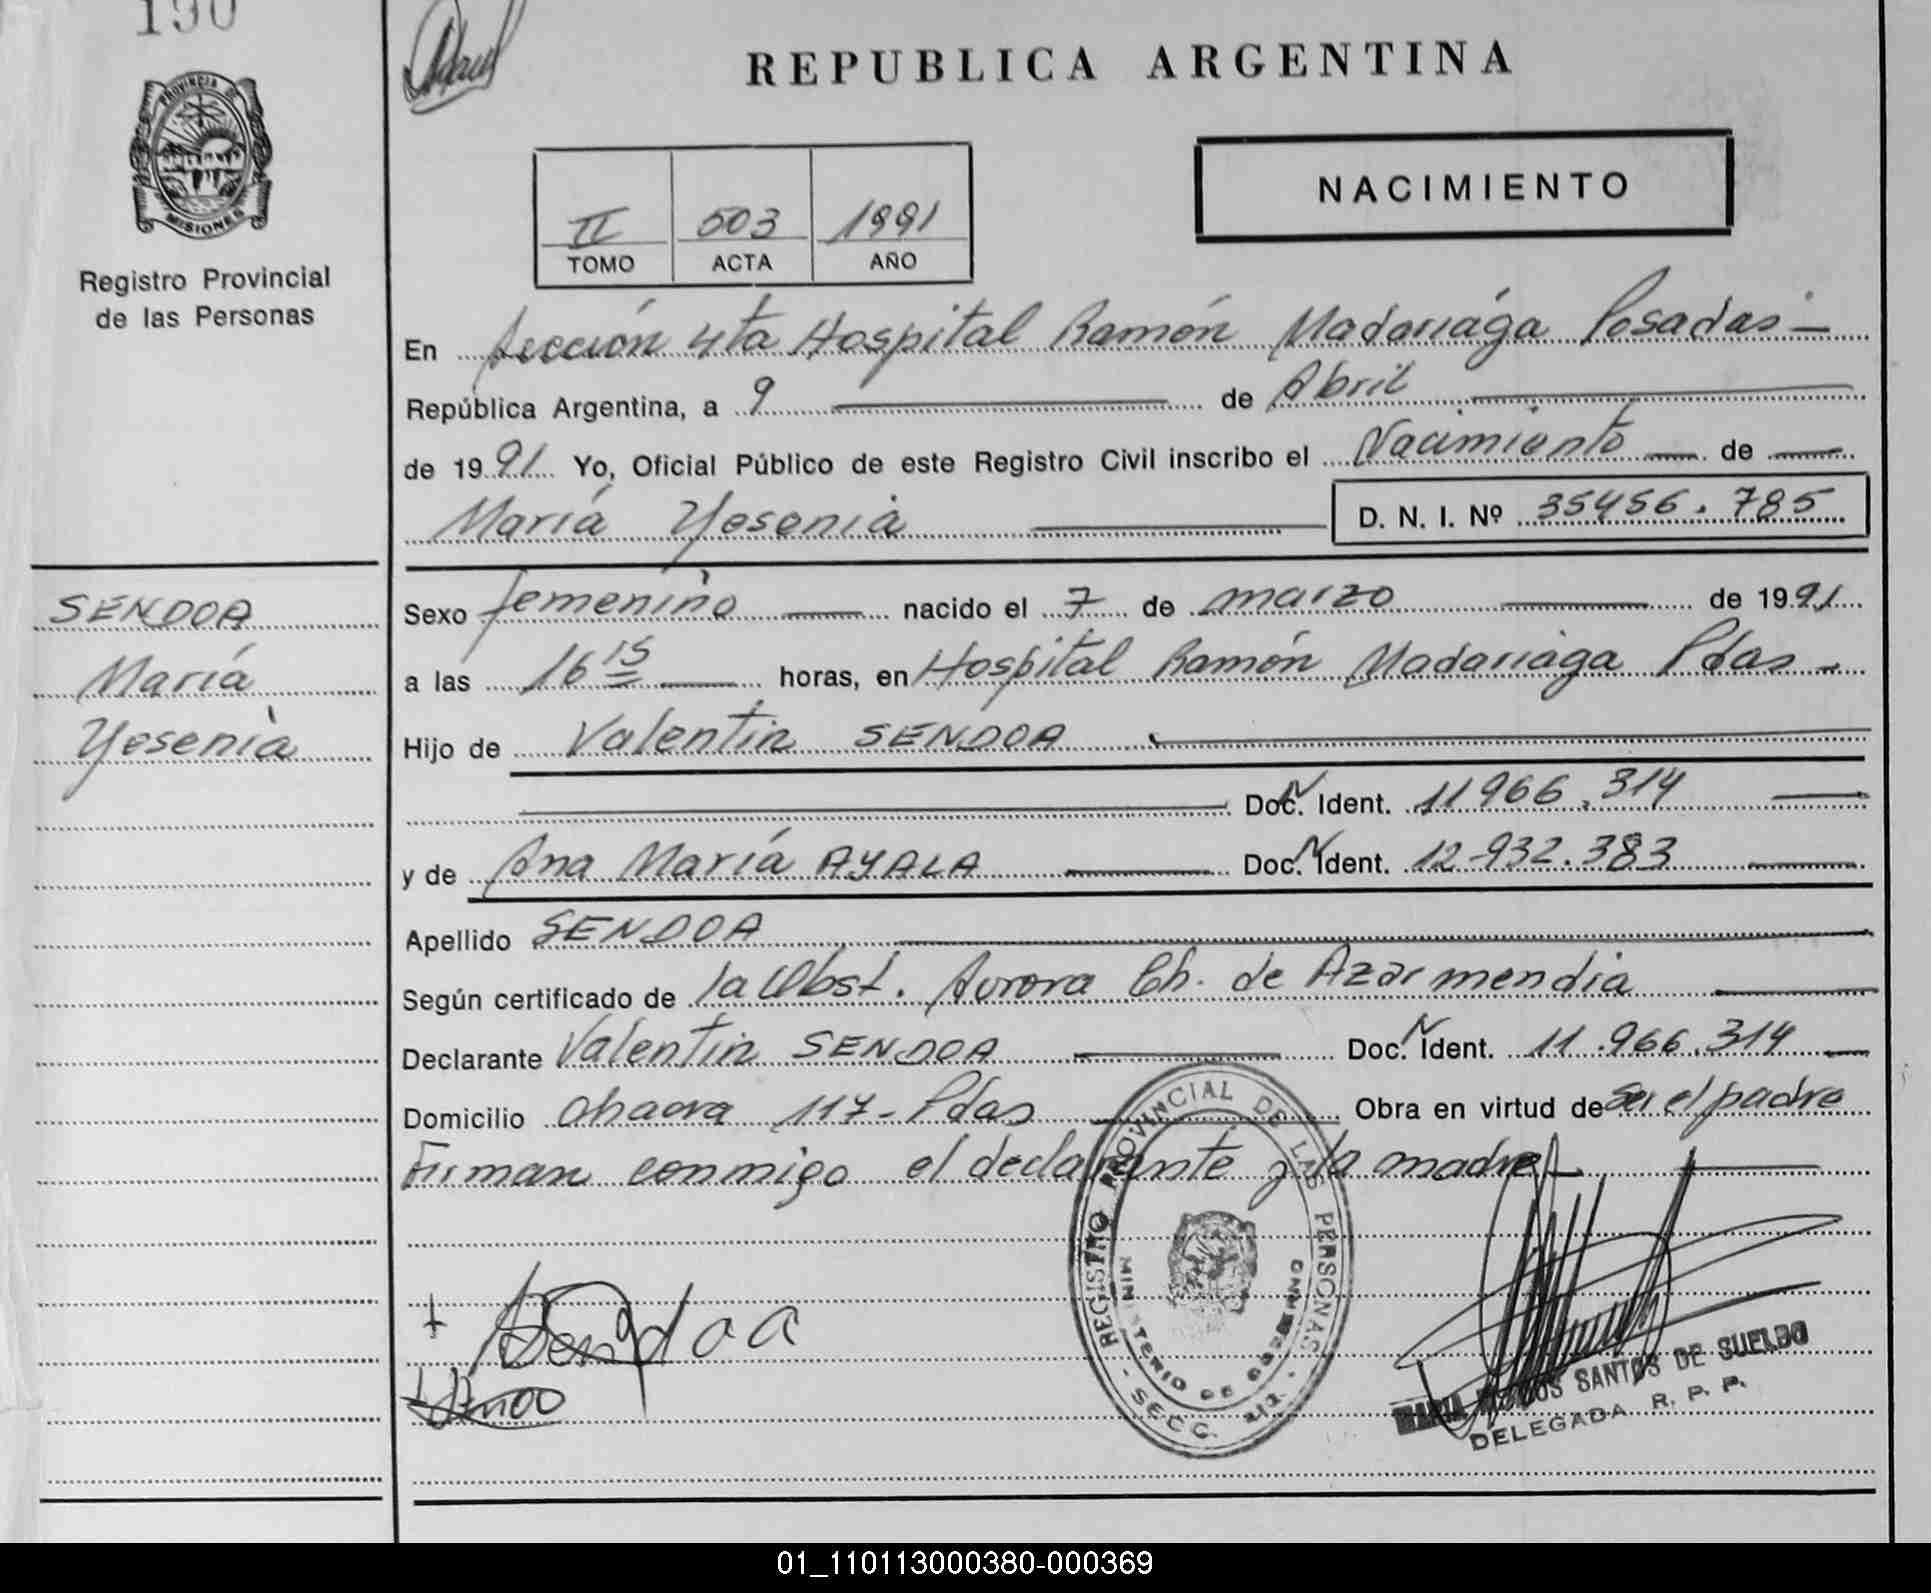 190
PROVINCIA DE
MISIONES
Registro Provincial
de las Personas
REPUBLICA ARGENTINA
II 503 1991
TOMO ACTA AÑO
NACIMIENTO
En Sección 4ta Hospital Ramón Madariaga Posadas
República Argentina, a 9 de Abril
de 1991 Yo, Oficial Público de este Registro Civil inscribo el Nacimiento de
María Yesenia D. N. I. Nº 35456.785
SENDOA
María
Yesenia
Sexo femenino nacido el 7 de marzo de 1991
a las 16 15 horas, en Hospital Ramón Madariaga Pdas
Hijo de Valentin SENDOA
Doc. N Ident. 11966.314
y de Ana María AYALA Doc. N Ident. 12.932.383
Apellido SENDOA
Según certificado de la Obst. Aurora Ch. de Azarmendia
Declarante Valentin SENDOA Doc. N Ident. 11.966.314
Domicilio chacra 117- Pdas Obra en virtud de ser el padre
Firman conmigo el declarante y la madre
Sendoa
REGISTRO PROVINCIAL DE LAS PERSONAS
MINISTERIO DE GOBIERNO
SECC.
MARIA SANTOS DE SUELDO
DELEGADA R. P. P.
01_110113000380-000369